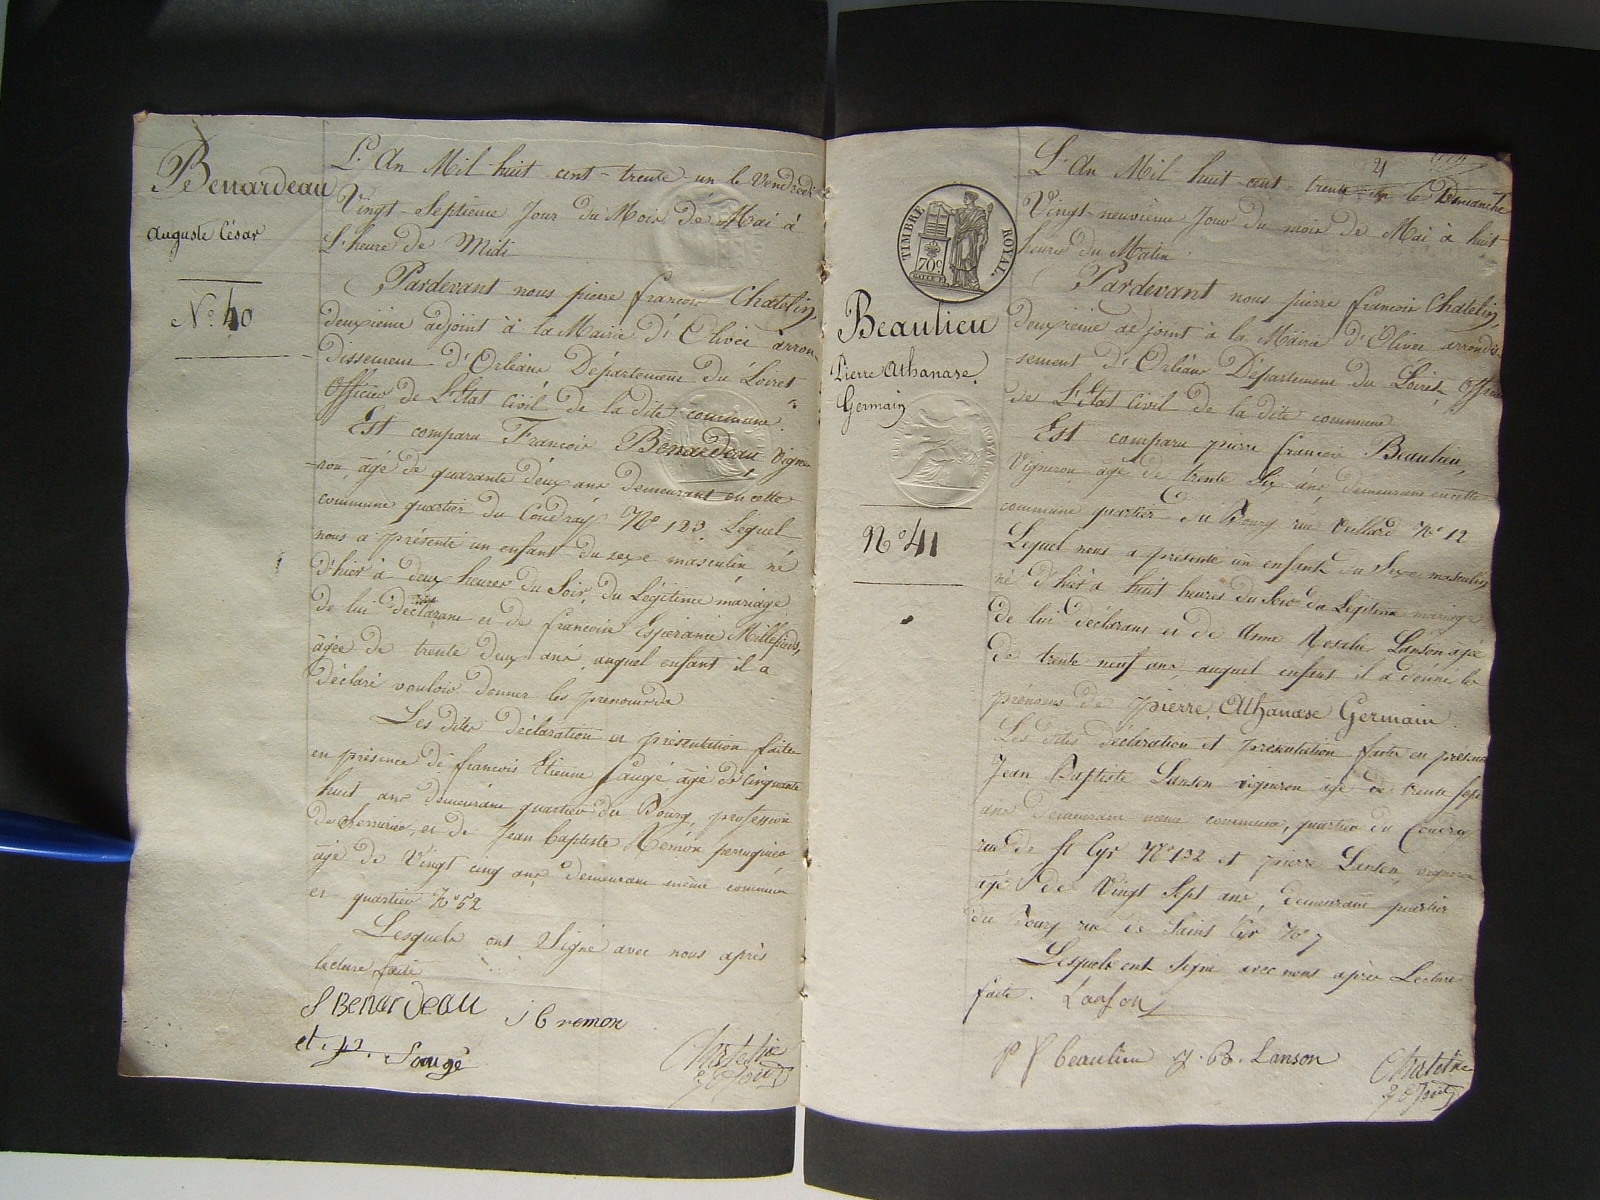 Benardeau
Auguste César
N.° 40
L'An Mil huit cent trente un le Vendredi
Vingt Septieme Jour du Mois de Mai à
L'heure de Midi
Pardevant nous pierre francois Chatelin,
deuxième adjoint à la Mairie d'Olivei arron-
dissement d'Orléans Département du Loiret
Officier de L'Etat Civil de la dite commune
Est comparu Francois Benardeau Vigne-
ron, âgé de quarante deux ans demeurant en cette
commune quartier du Coudray N° 123 Lequel
nous a présenté un enfant du sexe masculin né
d'hier à deux heures du Soir, du Légitime mariage
de lui déclarant et de francoise Esperance Millefieds,
âgée de trente deux ans, auquel enfant il a
déclaré vouloir donner les prenoms de
Les dites déclaration et présentation faites
en présence de francois Etienne Saugé âgé de Cinquante
huit ans demeurant quartier du Bourg, profession
de Serrurier, et de Jean baptiste Rémon perruquier
âgé de Vingt cinq ans demeurant même commune
et quartier N° 52
Lesquels ont Signé avec nous après
lecture faite
f Benardeau
j b remon
et. Saugé
Chatelin
2e adjoint
21
TIMBRE ROYAL.
70c
Beaulieu
Pierre Athanase
Germain
N° 41
L'An Mil huit cent trente un le Dimanche
Vingt-neuvième Jour du mois de Mai à huit
heures du Matin
Pardevant nous pierre francois Chatelin,
deuxieme adjoint à la Mairie d'Olivei arrondis-
sement d'Orléans Département du Loiret, Officier
de L'Etat Civil de la dite commune
Est comparu pierre francois Beaulieu,
Vigneron âgé de trente Six ans, demeurant en cette
commune quartier du Bourg rue N° 12
Lequel nous a présenté un enfant du Sexe masculin
né d'hier à huit heures du Soir du Légitime mariage
de lui déclarant et de Anne Rosalie Lanson âgée
de trente neuf ans, auquel enfant il a donné les
prénoms de pierre, Athanase Germain.
Les dites déclaration et présentation faite en présence
Jean Baptiste Lanson vigneron âgé de trente sept
ans demeurant même commune, quartier du Coudray
rue de St Cyr N° 132 et pierre Lanson, vigneron
âgé de Vingt Sept ans, demeurant quartier
du Bourg rue de Saint Cyr N° 7
Lesquels ont signé avec nous après Lecture
faite. Lanson
p f beaulieu J. B. Lanson
Chatelin
2e adjoint